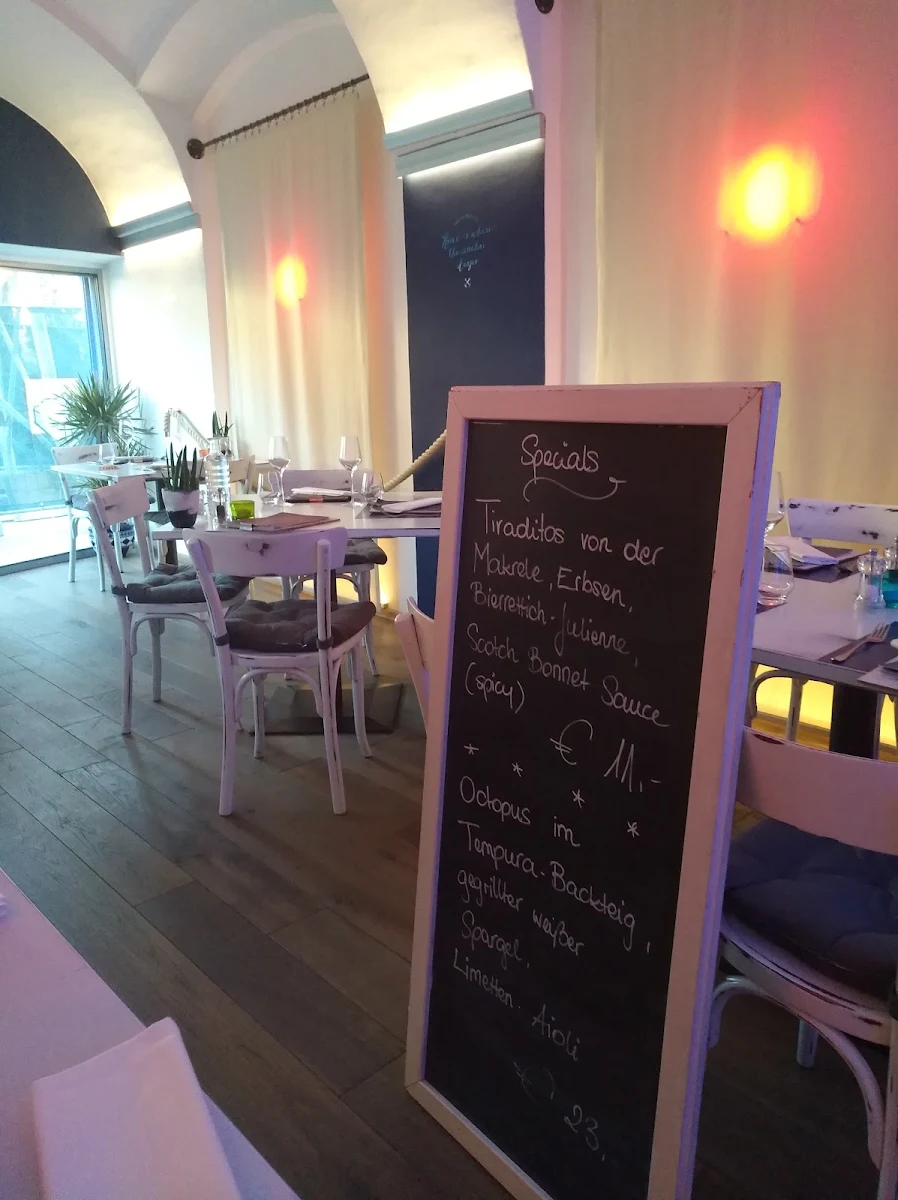 Specials
Tiraditos von der
Makrele, Erbsen,
Bierrettich-Julienne,
Scotch Bonnet Sauce
(spicy)
€ 11,-
* * * *
Octopus im
Tempura-Backteig,
gegrillter weißer
Spargel,
Limetten-Aioli
€ 23,